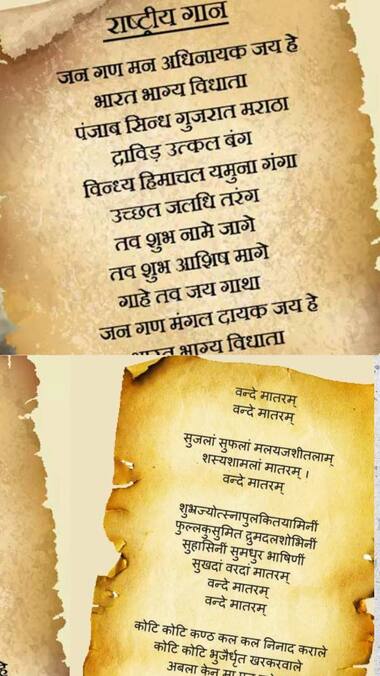 राष्ट्रीय गान
जन गण मन अधिनायक जय हे
भारत भाग्य विधाता
पंजाब सिन्ध गुजरात मराठा
द्राविड़ उत्कल बंग
विन्ध्य हिमाचल यमुना गंगा
उच्छल जलधि तरंग
तव शुभ नामे जागे
तव शुभ आशिष मागे
गाहे तव जय गाथा
जन गण मंगल दायक जय हे
भारत भाग्य विधाता
वन्दे मातरम्
वन्दे मातरम्
सुजलां सुफलां मलयजशीतलाम्
शस्यशामलां मातरम् ।
वन्दे मातरम्
शुभ्रज्योत्स्नापुलकितयामिनीं
फुल्लकुसुमित द्रुमदलशोभिनीं
सुहासिनीं सुमधुर भाषिणीं
सुखदां वरदां मातरम्
वन्दे मातरम्
वन्दे मातरम्
कोटि कोटि कण्ठ कल कल निनाद कराले
कोटि कोटि भुजैर्धृत खरकरवाले
अबला केन मा
हे